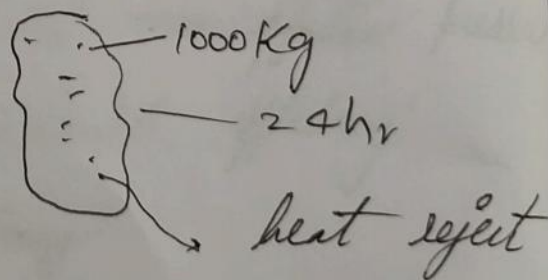 1000Kg
24hr
heat reject